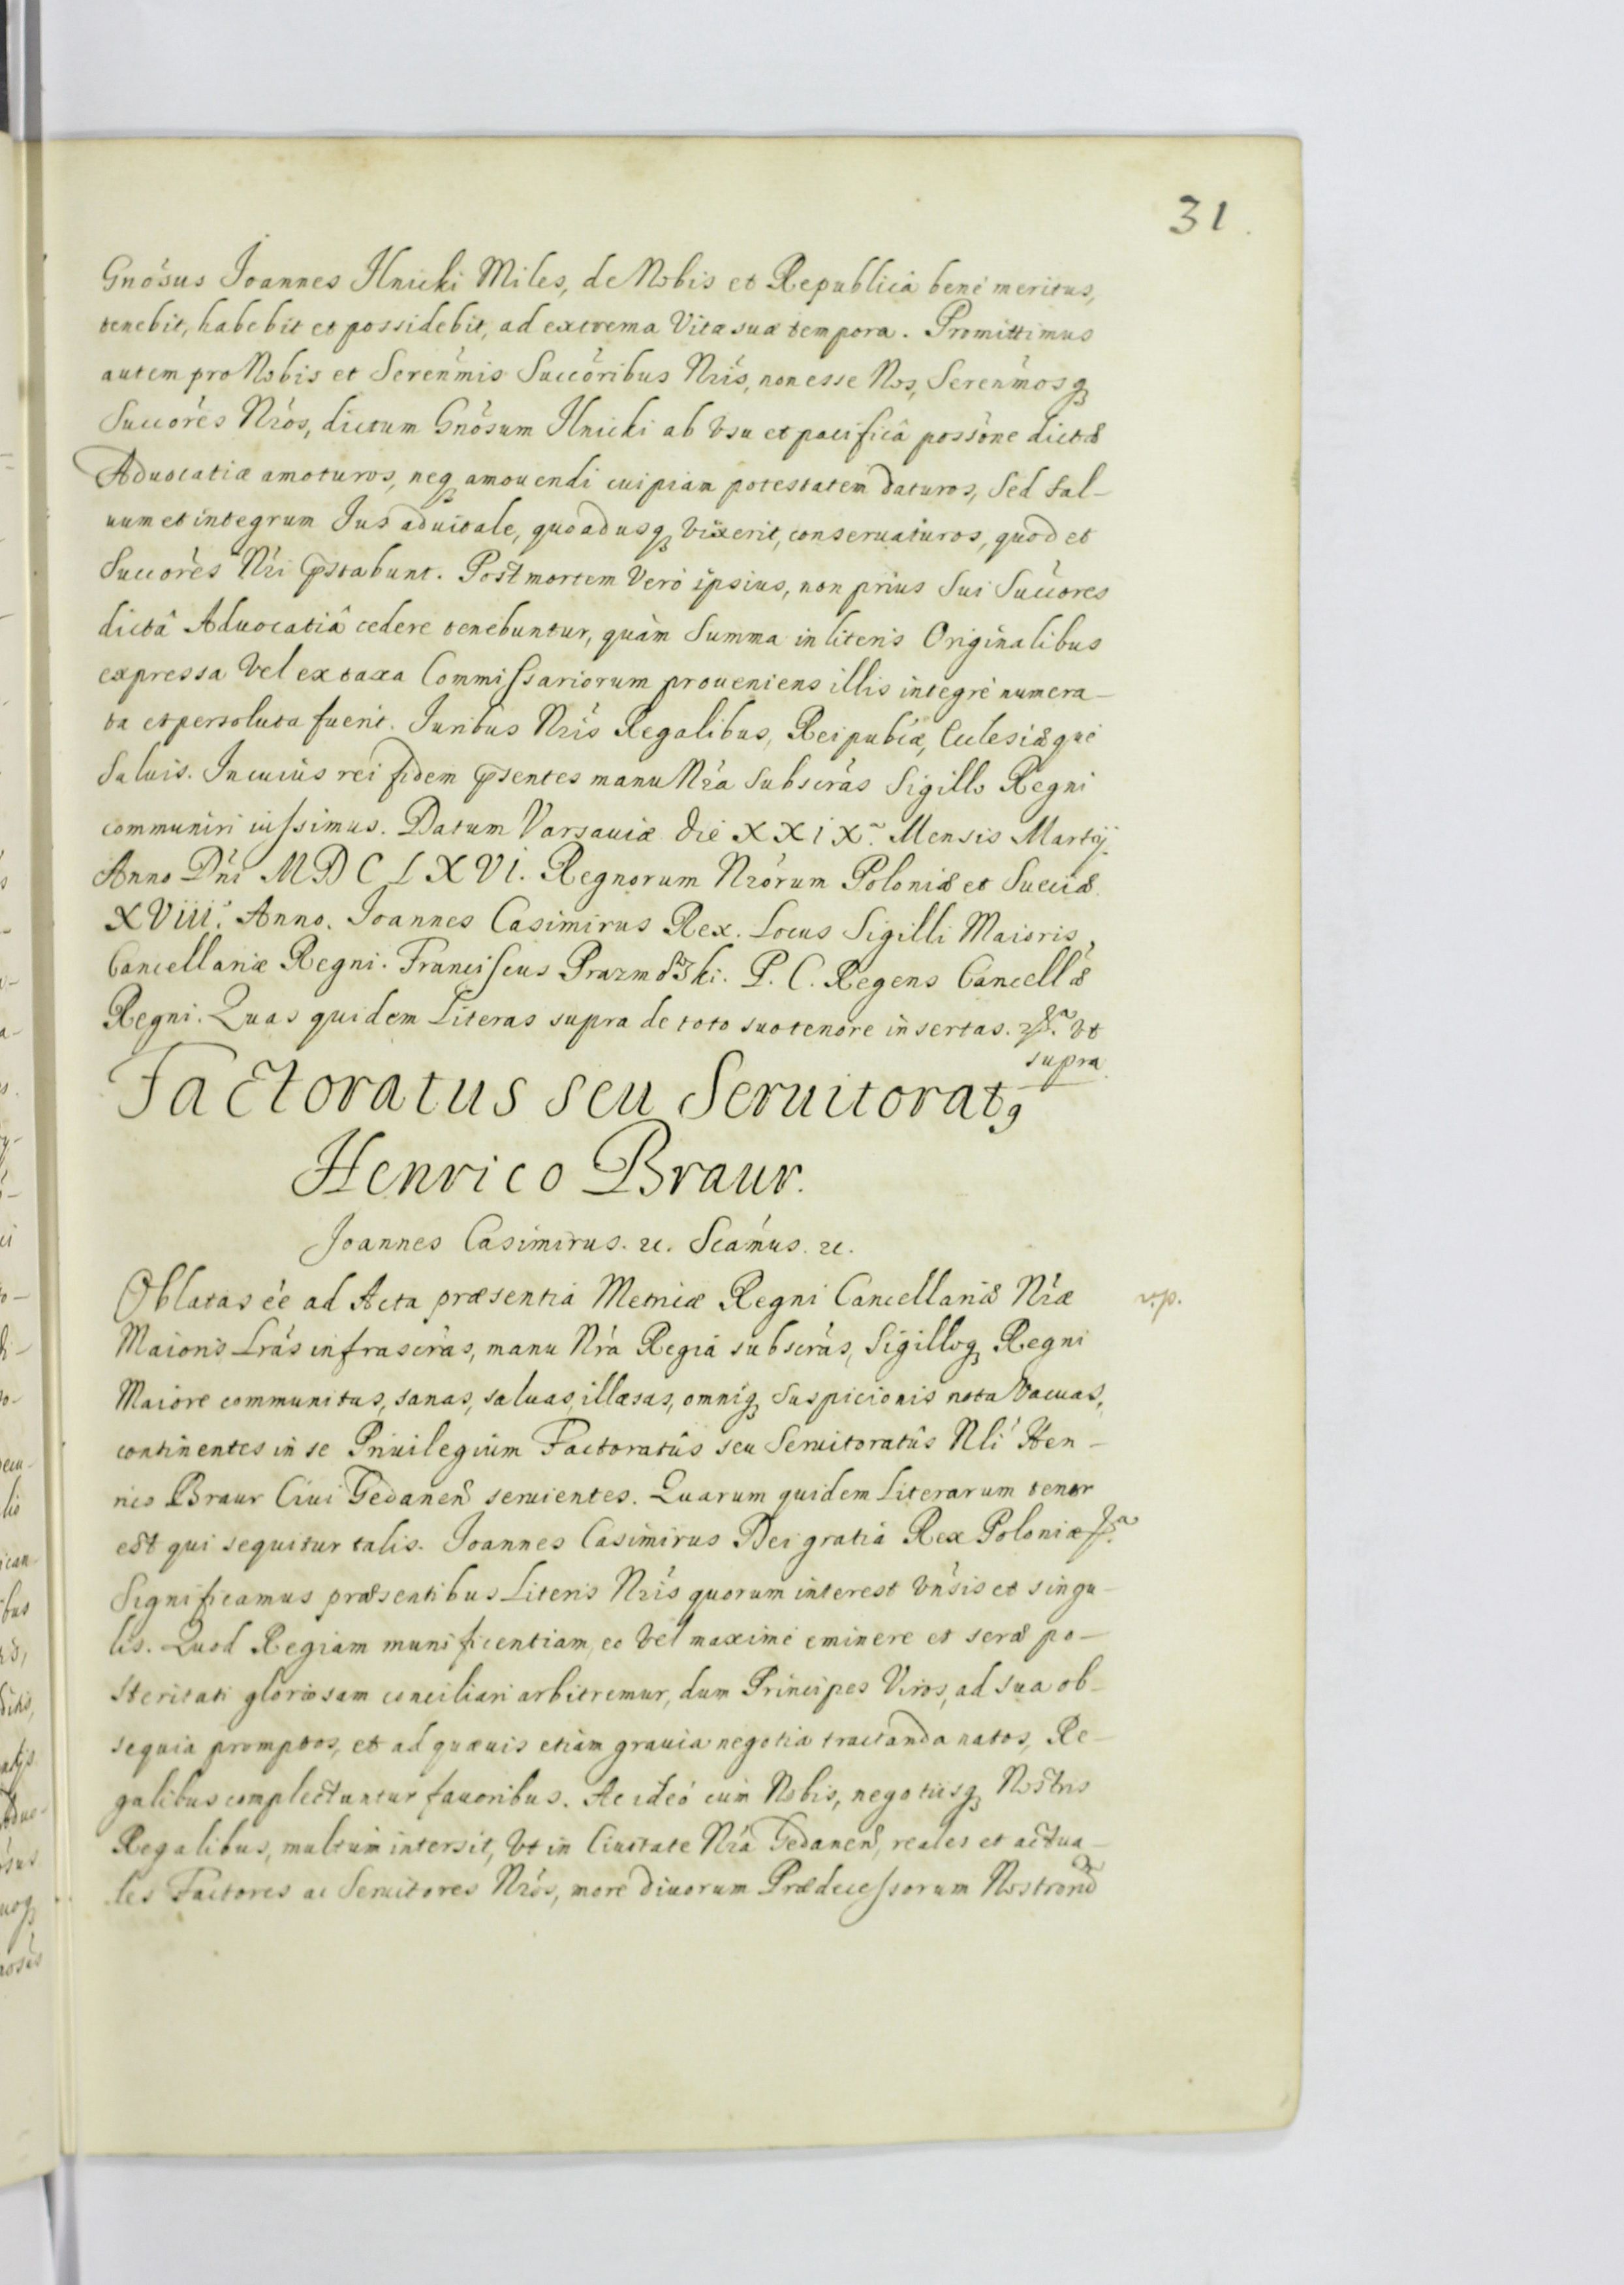 31.
Gnósus Joannes Ilnicki Miles, de Nobis et Republica bené meritus,
tenebit, habebit et possidebit, ad extrema Vitæ suæ tempora. Promittimus
autem pro Nobis et Serenmis Succóribus Nrís, non esse Nos, Serenmosq₃
Succores Nrós, dictum Gnósum Ilnicki ab Vsu et pacificâ possone dictæ
Aduocatiæ amoturos, neq₃ amouendi cuipiam potestatem daturos, Sed sal-
uum et integrum Jus aduitale, quoadusq₃ vixerit, conseruaturos, quod et
Succores Nri pstabunt. Post mortem Veró ipsius, non prius Sui Succores
dictâ Aduocatiâ cedere tenebuntur, quàm Summa in literis Originalibus
expressa Vel ex taxa Commissariorum proueniens illis integré numera-
ta et persoluta fuerit. Juribus Nrís Regalibus, Reipubcæ, Ecclesiæqué
Saluis. In cuius rei fidem psentes manu Nra Subscras Sigillo Regni
communiri iussimus. Datum Varsauiæ die XXIX. Mensis Martij
Anno Dni MDCLXVI. Regnorum Nrórum Poloniæ et Sueciæ
XVIII. Anno. Joannes Casimirus Rex. Locus Sigilli Maioris
Cancellariæ Regni. Franciscus Prazmowski. P. C. Regens Cancellæ
Regni. Quas quidem Literas supra de toto suo tenore insertas. Vt
supra
Factoratus seu Seruitoratꝯ
Henrico Braur.
Joannes Casimirus. &c. Scamus. &c.
Oblatas ee ad Acta præsentia Metricæ Regni Cancellariæ Nræ
v.p.
Maioris Lras infrascras, manu Nra Regiá subscras, Sigilloq₃ Regni
Maiore communitus, sanas, saluas, illæsas, omniq₃ Suspicionis nota Vacuas,
continentes in se Priuilegium Factoratûs seu Seruitoratûs Nli Hen-
rico Braur Ciui Gedanen seruientes. Quarum quidem Literarum tenor
est qui sequitur talis. Joannes Casimirus Dei gratia Rex Poloniæ
Significamus præsentibus Literis Nrís quorum interest Vnsis et singu-
lis. Quod Regiam munificentiam, eo Vel maximé eminere et seræ po-
steritati gloriosam conciliari arbitremur, dum Principes Viros, ad sua ob-
sequia promptos, et ad quæuis etiam grauia negotia tractanda natos, Re-
galibus complectuntur fauoribus. Ac ideó cum Nobis, negotiisq₃ Nostris
Regalibus, multum intersit, Vt in Ciuitate Nra Gedanen, reales et actua-
les Factores ac Seruitores Nrós, more diuorum Prædecessorum Nostrorũ